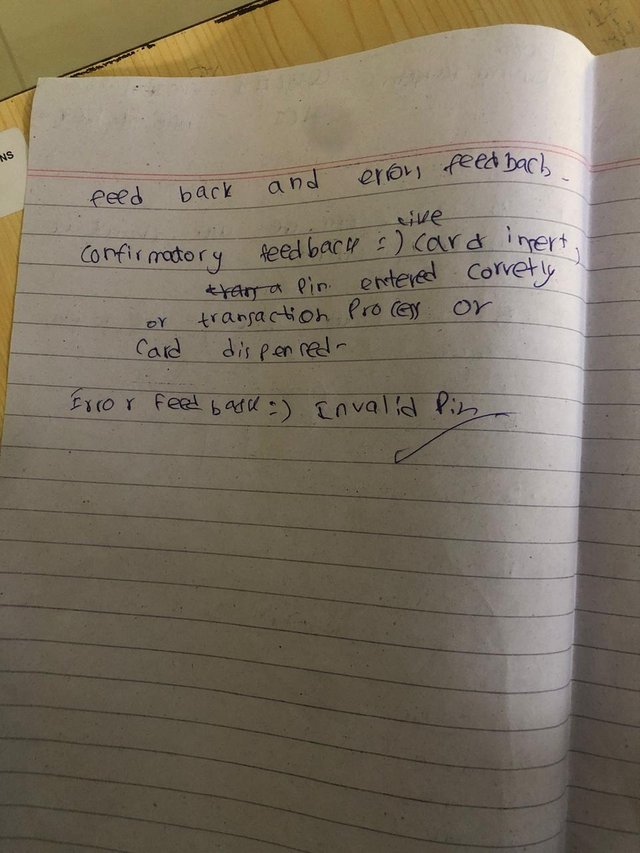 feed back and error, feedback.
like
Confirmatory feedback :=) Card insert,
tran a Pin entered corretly
or transaction Process or
Card dispensed-
Error Feed back :=) Invalid Pin
NS